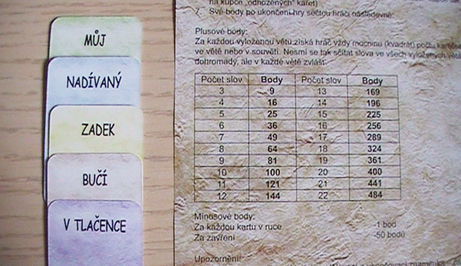 MŮJ
NADÍVANÝ
ZADEK
BUČÍ
V TLAČENCE
na kupón "odhozených" karet)
7. Své body po ukončení hry sečtou hráči následovně:
Plusové body:
Za každou vyloženou větu získá hráč vždy mocninu (kvadrát) počtu
ve větě nebo v souvětí. Nesmí se tak sčítat slova ve všech vyložených
dohromady, ale v každé větě zvlášť.
Počet slov Body Počet slov Body
3 9 13 169
4 16 14 196
5 25 15 225
6 36 16 256
7 49 17 289
8 64 18 324
9 81 19 361
10 100 20 400
11 121 21 441
12 144 22 484
Minusové body:
Za každou kartu v ruce -1 bod
Za zavření -50 bodů
Upozornění: